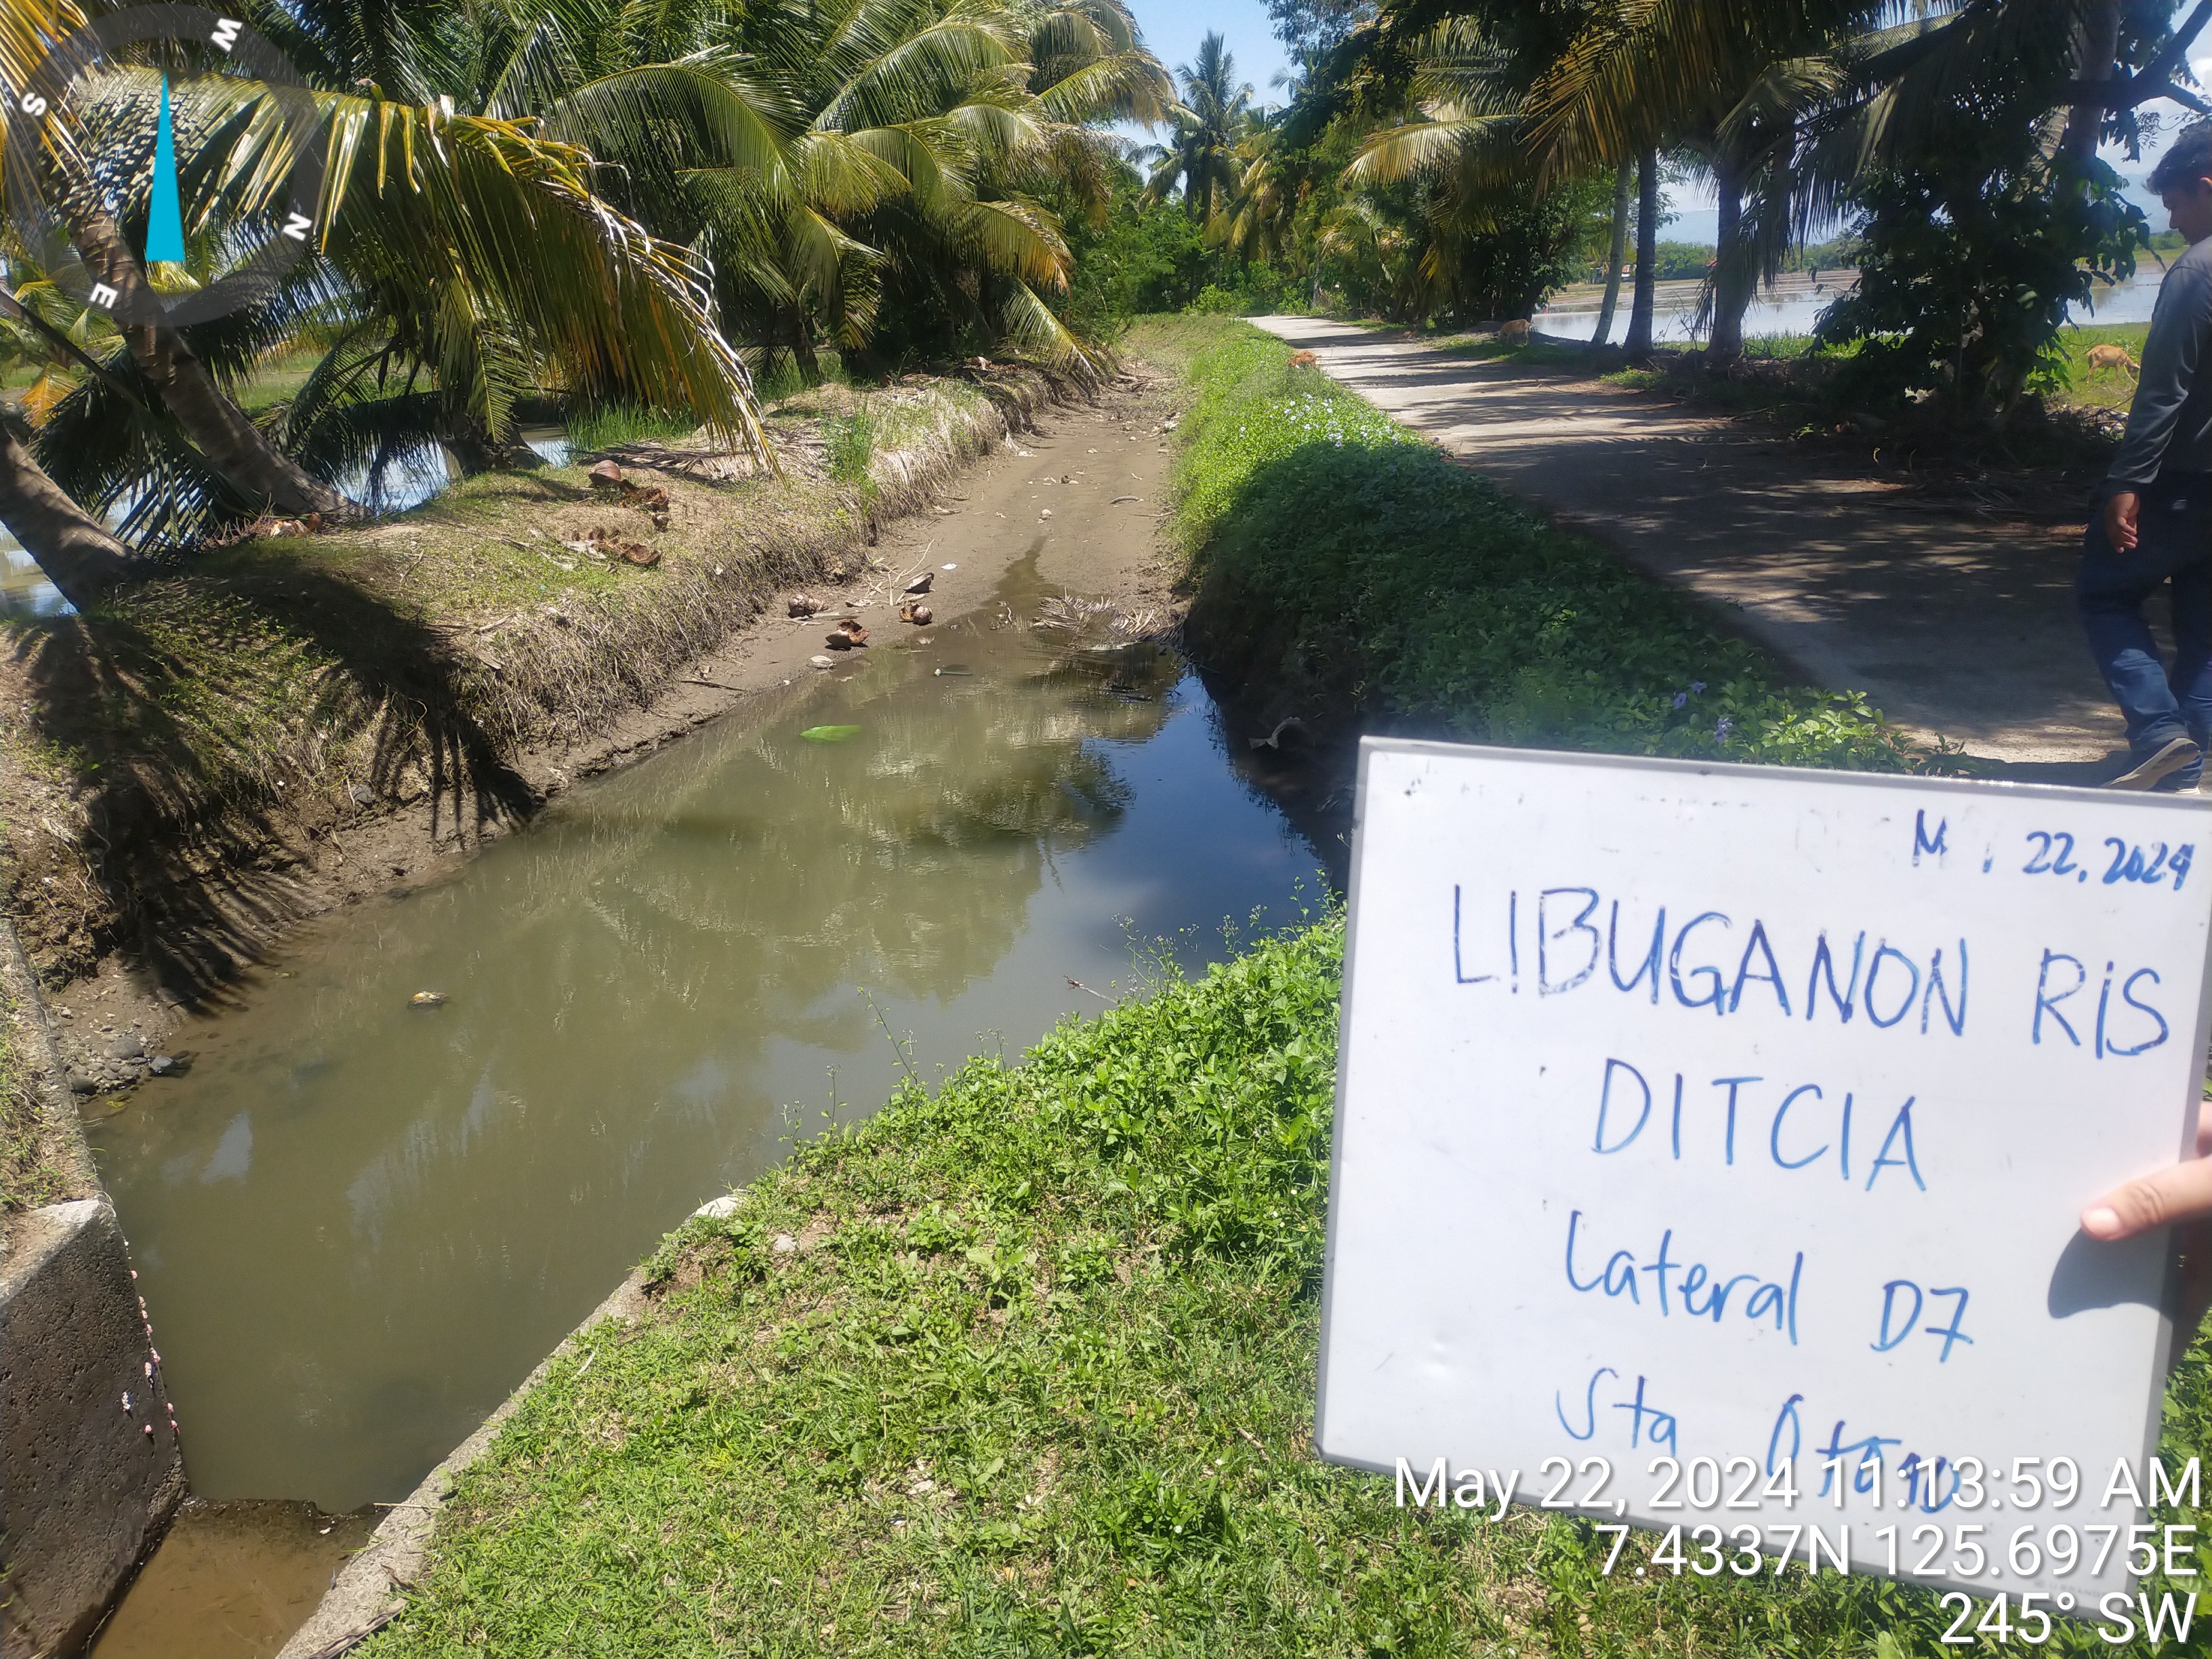 W
S
N
E
M . 22, 2024
LIBUGANON RIS
DITCIA
Lateral D7
Sta
May 22, 2024 11:13:59 AM
7.4337N 125.6975E
245° SW